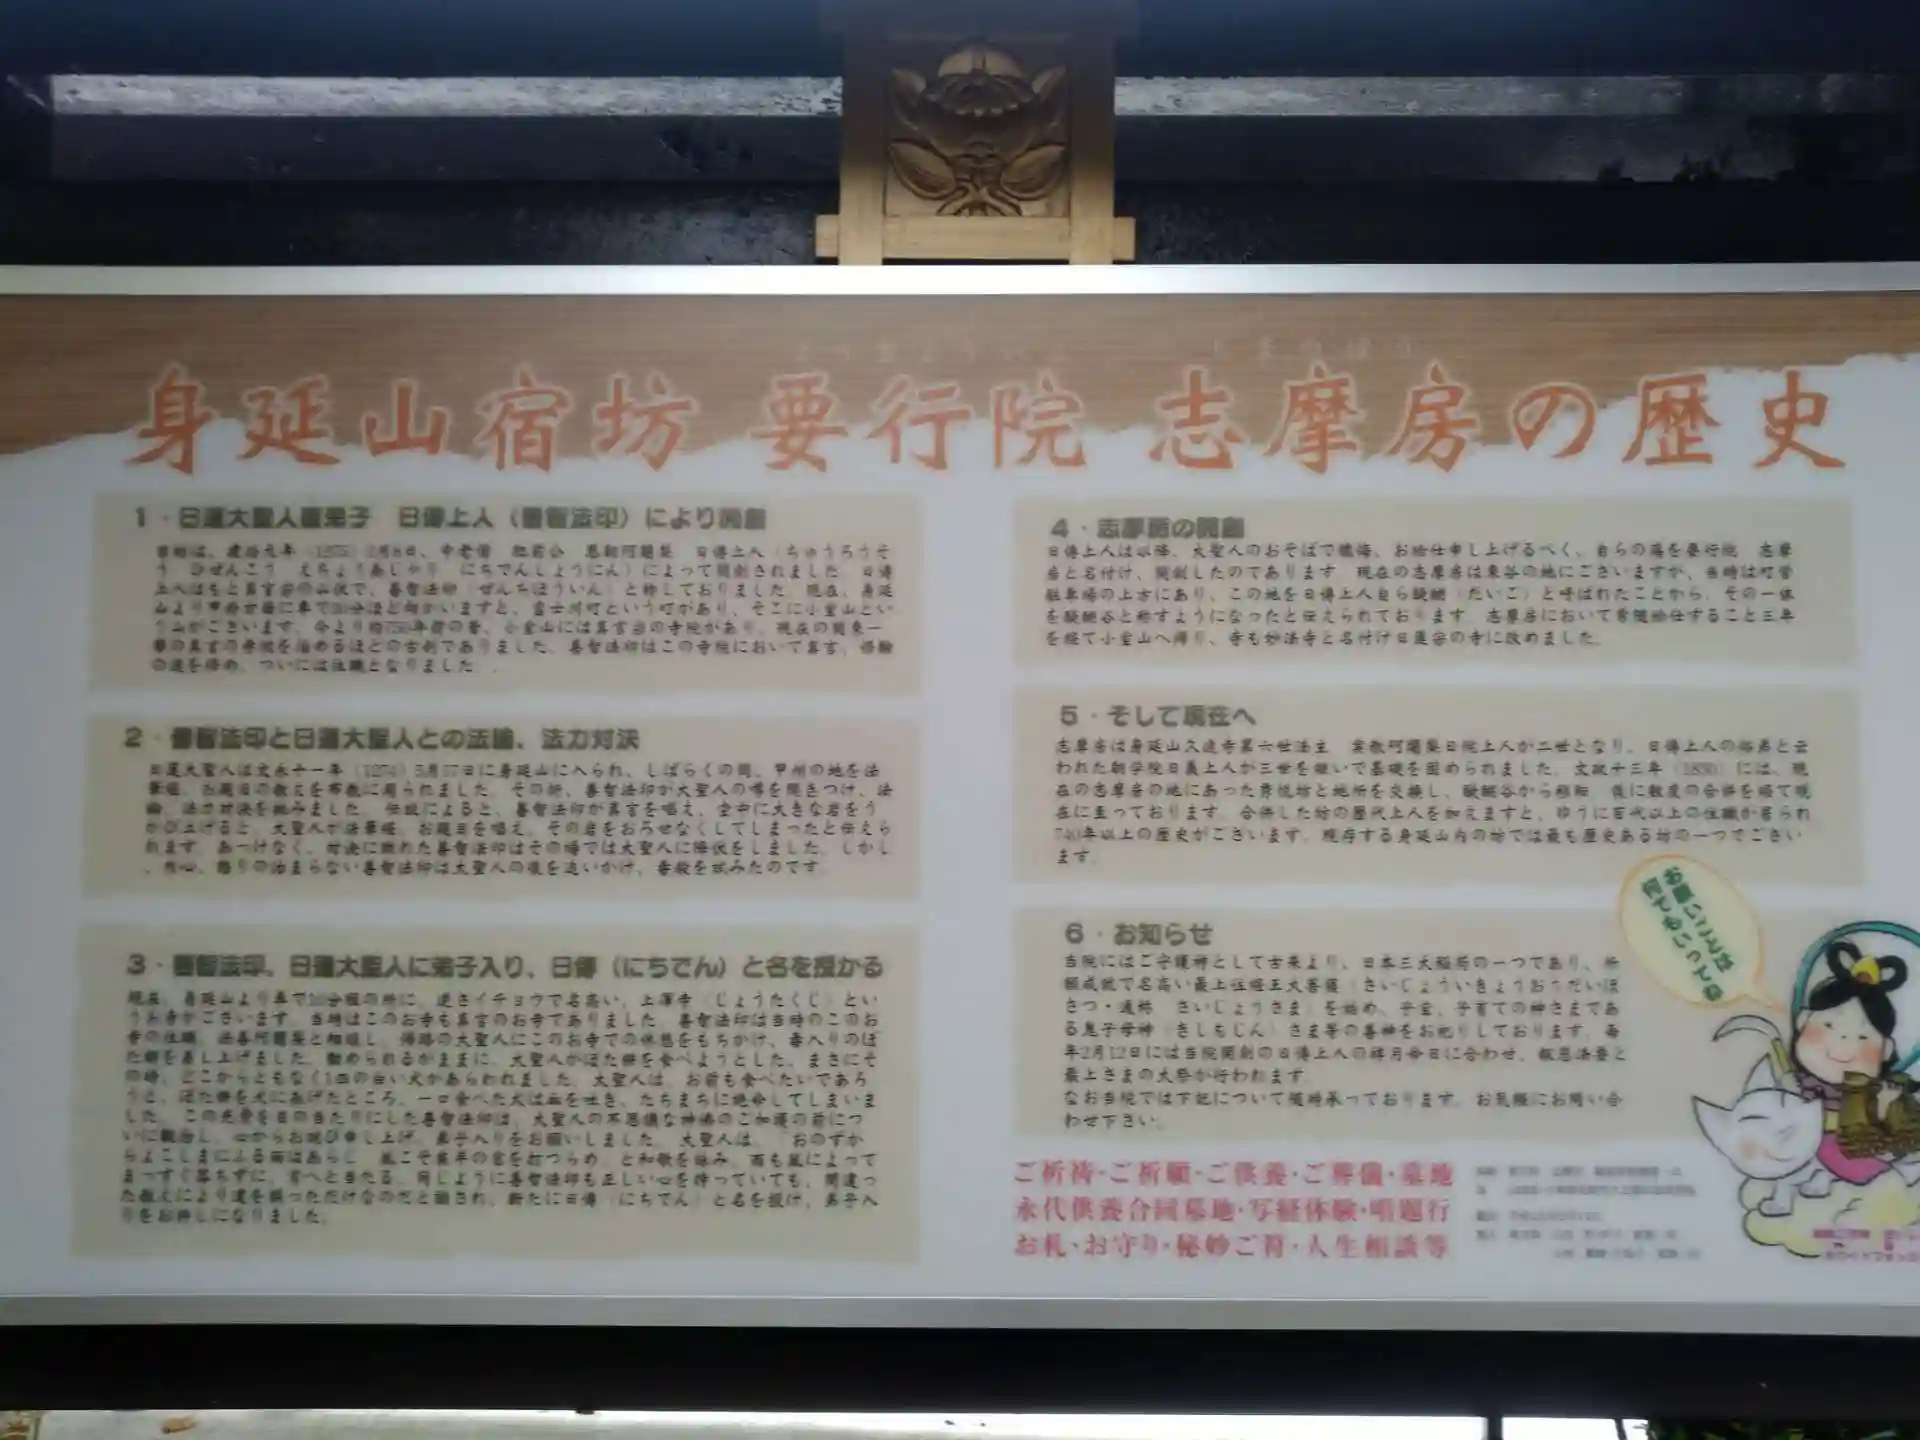 身延山宿坊 要行院 志摩房の歴史
1・日蓮大聖人直弟子 日傳上人（善智法印）により開創
う ひぜんこう えちょうあじゃり にちでんしょうにん）によって開創されました 日傳
上人はもと真言宗の山伏で、善智法印（ぜんちほういん）と称しておりました。現在、身延
山より甲府方面に車で30分ほど向かいますと、富士川町という町があり、そこに小室山とい
う山がございます。今より約750年前の昔、小室山には真言宗の寺院があり、現在の関東一
の道を修め、ついには住職となりました
2・善智法印と日蓮大聖人との法論、法力対決
日蓮大聖人は文永十一年（1274）5月17日に身延山に入られ、しばらくの間、甲州の地を法
華経、お題目の教えを布教に周られました。その折、善智法印が大聖人の噂を聞きつけ、法
論、法力対決を挑みました 伝説によると、善智法印が真言を唱え、空中に大きな岩をう
かび上げると、大聖人が法華経、お題目を唱え、その岩をおろせなくしてしまったと伝えら
れます。あっけなく、対決に敗れた善智法印はその場では大聖人に降伏をしました。しかし
、内心、怒りの治まらない善智法印は大聖人の後を追いかけ、毒殺を試みたのです。
3・善智法印、日蓮大聖人に弟子入り、日傳（にちでん）と名を授かる
現在、身延山より車で10分程の所に、逆さイチョウで名高い、上澤寺（じょうたくじ）とい
うお寺がございます 当時はこのお寺も真言のお寺でありました 善智法印は当時のこのお
寺の住職、法喜阿闍梨と相談し、帰路の大聖人にこのお寺での休息をもちかけ、毒入りのぼ
た餅を差し上げました。勧められるがままに、大聖人がぼた餅を食べようとした、まさにそ
の時、どこからともなく1匹の白い犬があらわれました。大聖人は、お前も食べたいであろ
うと、ぼた餅を犬にあげたところ、一口食べた犬は血を吐き、たちまちに絶命してしまいま
した この光景を目の当たりにした善智法印は、大聖人の不思議な神仏のご加護の前につ
いに観治し、心からお詫び申し上げ、弟子入りをお願いしました 大聖人は、「おのずか
らよこしまにふる雨はあらじ 風こそ夜半の窓を打つらめ」と和歌を詠み、雨も風によって
まっすぐ落ちずに、窓へと当たる、同じように善智法印も正しい心を持っていても、間違っ
た教えにより道を誤っただけなのだと諭され、新たに日傳（にちでん）と名を授け、弟子入
りをお許しになりました。
4・志摩房の開創
日傳上人は以降、大聖人のおそばで懺悔、お給仕申し上げるべく、自らの庵を要行院 志摩
房と名付け、開創したのであります 現在の志摩房は東谷の地にございますが、当時は町営
駐車場の上方にあり、この地を日傳上人自ら醍醐（だいご）と呼ばれたことから、その一体
を醍醐谷と称すようになったと伝えられております 志摩房において常随給仕すること三年
を経て小室山へ帰り、寺も妙法寺と名付け日蓮宗の寺に改めました。
5・そして現在へ
志摩房は身延山久遠寺第六世法主 寂教阿闍梨日院上人が二世となり、日傳上人の俗弟と云
われた朝学院日義上人が三世を継いで基礎を固められました。文政十三年（1830）には、現
在の志摩房の地にあった寿悦坊と地所を交換し、醍醐谷から移転 後に数度の合併を経て現
在に至っております。合併した坊の歴代上人を加えますと、ゆうに百代以上の住職が居られ
740年以上の歴史がございます。現存する身延山内の坊では最も歴史ある坊の一つでござい
ます。
6・お知らせ
当院にはご守護神として古来より、日本三大稲荷の一つであり、所
願成就で名高い最上位経王大菩薩（さいじょういきょうおうだいぼ
さつ・通称 さいじょうさま）を始め、子宝、子育ての神さまであ
る鬼子母神（きしもじん）さま等の善神をお祀りしております。毎
年2月12日には当院開創の日傳上人の祥月命日に合わせ、報恩法要と
最上さまの大祭が行われます
なお当院では下記について随時承っております。お気軽にお問い合
わせ下さい。
ご祈祷・ご祈願・ご供養・ご葬儀・墓地
永代供養合同墓地・写経体験・唱題行
お札・お守り・秘妙ご符・人生相談等
お願いことは
何でもいってね